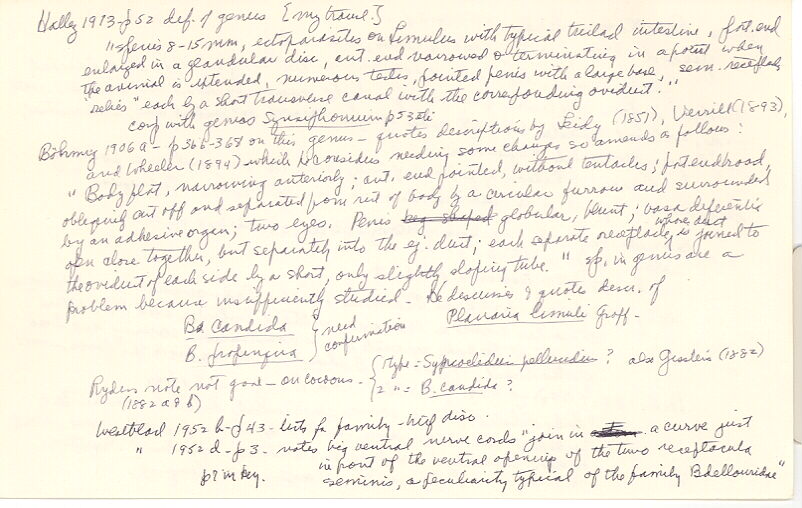 Halley 1913-p52 def. of genus [my transl.]
"Genus 8-15 mm, ectoparasites on Limulus with typical triclad intestine, post. end
enlarged in a glandular disc, ant. end narrowed & terminating in a point when
the animal is extended, numerous testes, pointed penis with a large base, sem. receptacles
"reliés" each by a short transverse canal with the corresponding oviduct."
comp with genus Syncoelidium p53 etc
Böhmig 1906a - p365-368 on this genus - quotes descriptions by Leidy (1851), Verrill (1893),
and Wheeler (1894) which he considers needing some changes so amends as follows:
"Body flat, narrowing anteriorly; ant. end pointed, without tentacles; post end broad,
obliquely cut off and separated from rest of body by a circular furrow and surrounded
by an adhesive organ; two eyes. Penis globular, blunt; vasa deferentia
open close together, but separately into the ej. duct; each separate receptacle, whose duct is joined to
the oviduct of each side by a short, only slightly sloping tube." sp. in genus are a
problem because insufficiently studied - He discusses & quotes descr. of
Bd. candida
B. propinqua } need confirmation
Planaria limuli Graff.
Ryder's note not good - on cocoons - { 1 type = Syncoelidium pellucidum ? also Gissler (1882)
(1882 a & b) 2 " = B. candida ?
Westblad 1952 b - p43 - lists fa family - brief disc.
" 1952 d - p3 - notes big ventral nerve cords "join in a curve just
in front of the ventral opening of the two receptacula
seminis, a peculiarity typical of the family Bdellouridae"
p7 in key.